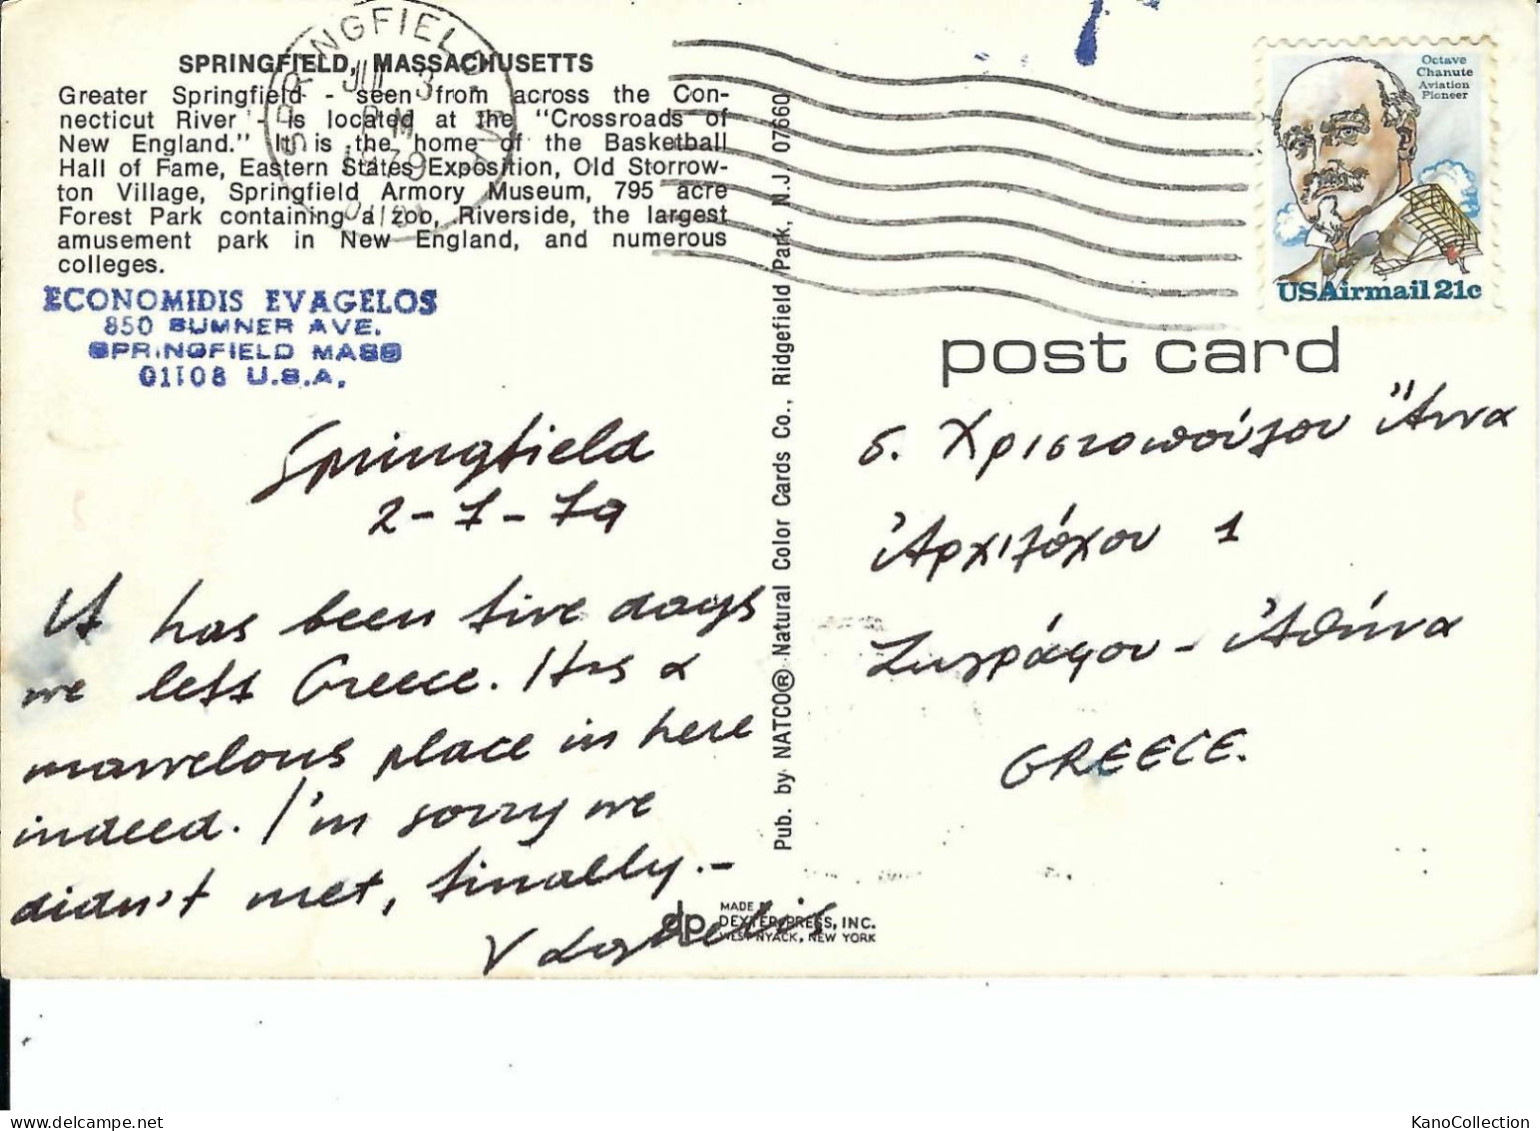 SPRINGFIELD, MASSACHUSETTS
Greater Springfield - seen from across the Con-
necticut River - is located at the "Crossroads of
New England." It is the home of the Basketball
Hall of Fame, Eastern States Exposition, Old Storrow-
ton Village, Springfield Armory Museum, 795 acre
Forest Park containing a zoo, Riverside, the largest
amusement park in New England, and numerous
colleges.
SPRINGFIELD MA
JUL 3
PM
1979
ECONOMIDIS EVAGELOS
850 SUMNER AVE.
SPRINGFIELD MASS
01108 U.S.A.
Springfield
2-7-79
It has been five days
we left Greece. It's a
marvelous place in here
indeed. I'm sorry we
didn't met, finally.-
Pub. by NATCO® Natural Color Cards Co., Ridgefield Park, N.J 07660
dp
MADE
DEXTER PRESS, INC.
WEST NYACK, NEW YORK
Octave
Chanute
Aviation
Pioneer
USAirmail 21c
post card
δ. Χριστοπούλου Ἄννα
Ἀρχιλόχου 1
Ζωγράφου - Ἀθήνα
GREECE.
KanoCollection
www.delcampe.net